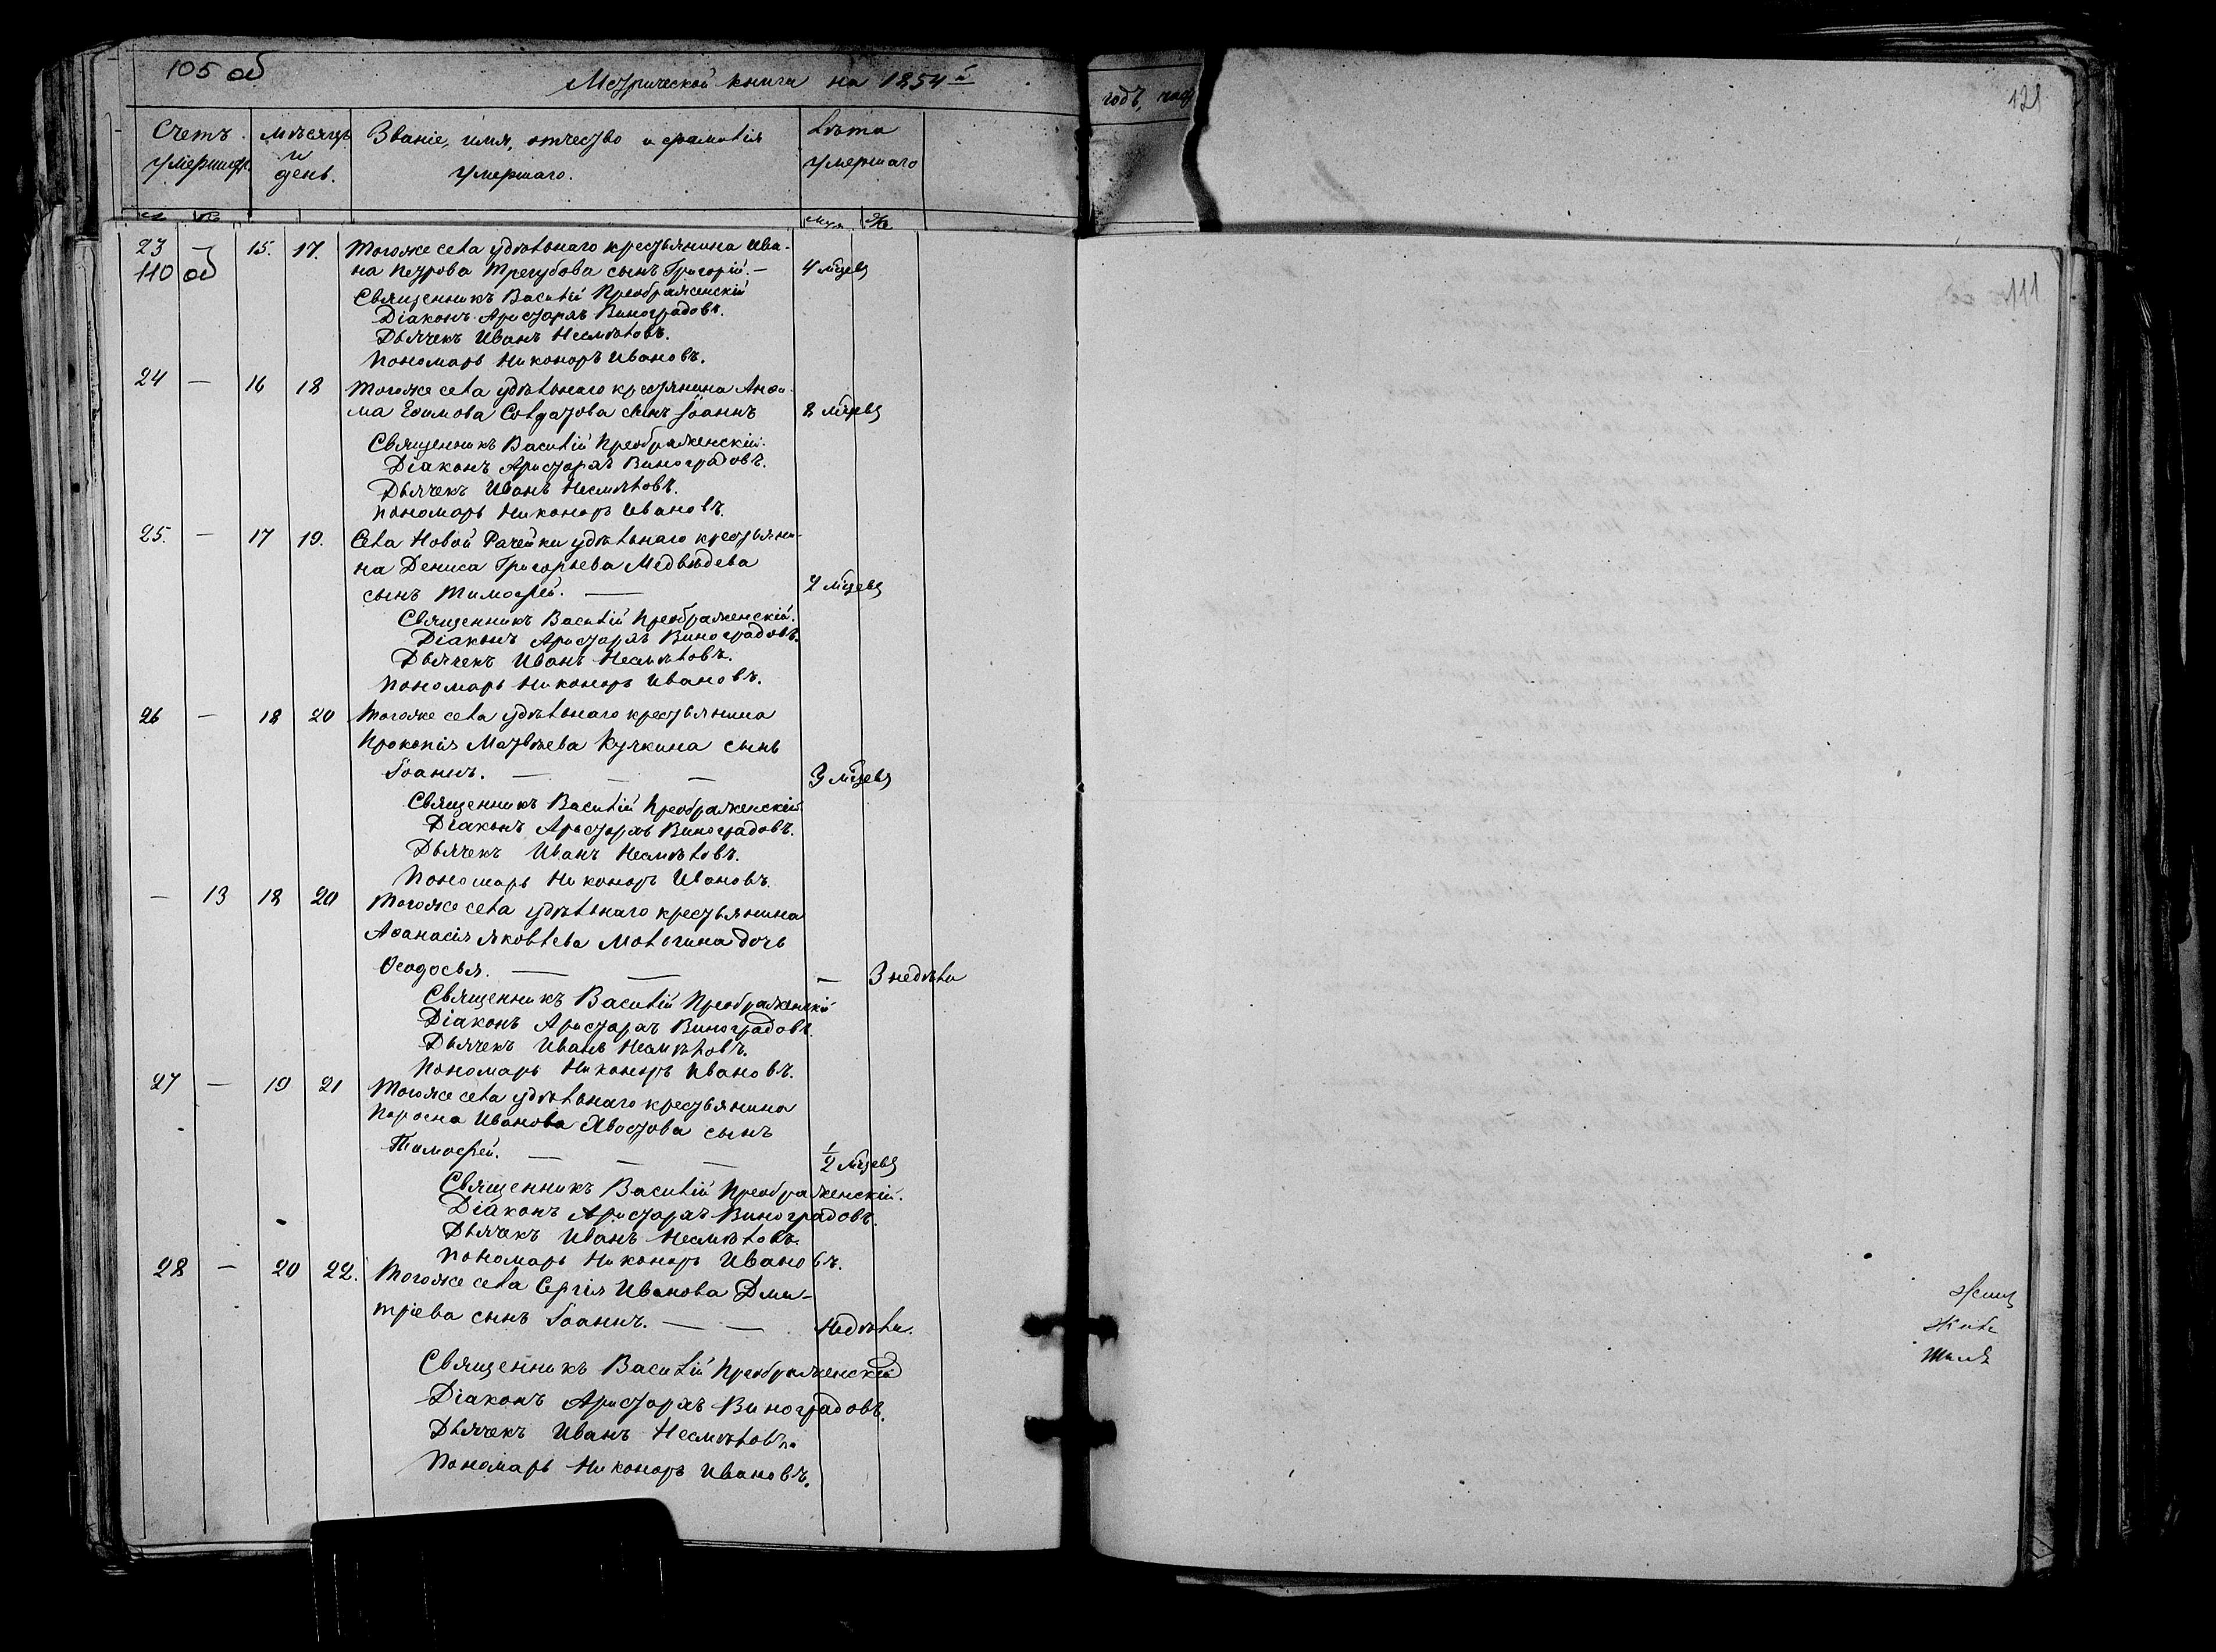 105 об
Метрической книги на 1854й
годъ, час
121
Счетъ умершихъ.
Мѣсяцъ и день.
Званіе, имя, отчество и фамилія умершаго.
Лѣта умершаго
23 — 15. 17. Тогоже села удѣльнаго крестьянина Ива-
110 об
на Петрова Трегубова сынъ Григорій. — 4 мцевъ
Священникъ Василій Преображенскій
Діаконъ Аристархъ Виноградовъ.
Дьячекъ Иванъ Несмѣловъ.
Пономарь Никоноръ Ивановъ.
111
24 — 16 18 Тогоже села удѣльнаго крестьянина Анѳи-
ма Ефимова Солдатова сынъ Іоаннъ 8 мцевъ
Священникъ Василій Преображенскій.
Діаконъ Аристархъ Виноградовъ.
Дьячекъ Иванъ Несмѣловъ.
Пономарь Никоноръ Ивановъ.
25. — 17 19. Села Новой Рачейки удѣльнаго крестьяни-
на Дениса Григорьева Медвѣдева
сынъ Тимофей. — мцевъ
Священникъ Василій Преображенскій.
Діаконъ Аристархъ Виноградовъ.
Дьячекъ Иванъ Несмѣловъ.
Пономарь Никоноръ Ивановъ.
26 — 18 20 Тогоже села удѣльнаго крестьянина
Прокопія Матвѣева Кучкина сынъ
Іоаннъ. — — — 3 мцевъ
Священникъ Василій Преображенскій.
Діаконъ Аристархъ Виноградовъ.
Дьячекъ Иванъ Несмѣловъ.
Пономарь Никоноръ Ивановъ.
— 13 18 20 Тогоже села удѣльнаго крестьянина
Аѳанасія Яковлева Мологина дочь
Ѳеодосья. — — — 3 недѣли
Священникъ Василій Преображенскій
Діаконъ Аристархъ Виноградовъ.
Дьячекъ Иванъ Несмѣловъ.
Пономарь Никоноръ Ивановъ.
27 — 19 21 Тогоже села удѣльнаго крестьянина
Иванова Хвостова сынъ
Тимофей. — — — 1/2 мцевъ
Священникъ Василій Преображенскій.
Діаконъ Аристархъ Виноградовъ.
Дьячекъ Иванъ Несмѣловъ.
Пономарь Никоноръ Ивановъ.
28 — 20 22. Тогоже села Сергія Иванова Дми-
тріева сынъ Іоаннъ. — — недѣли.
Священникъ Василій Преображенскій
Діаконъ Аристархъ Виноградовъ.
Дьячекъ Иванъ Несмѣловъ.
Пономарь Никоноръ Ивановъ.